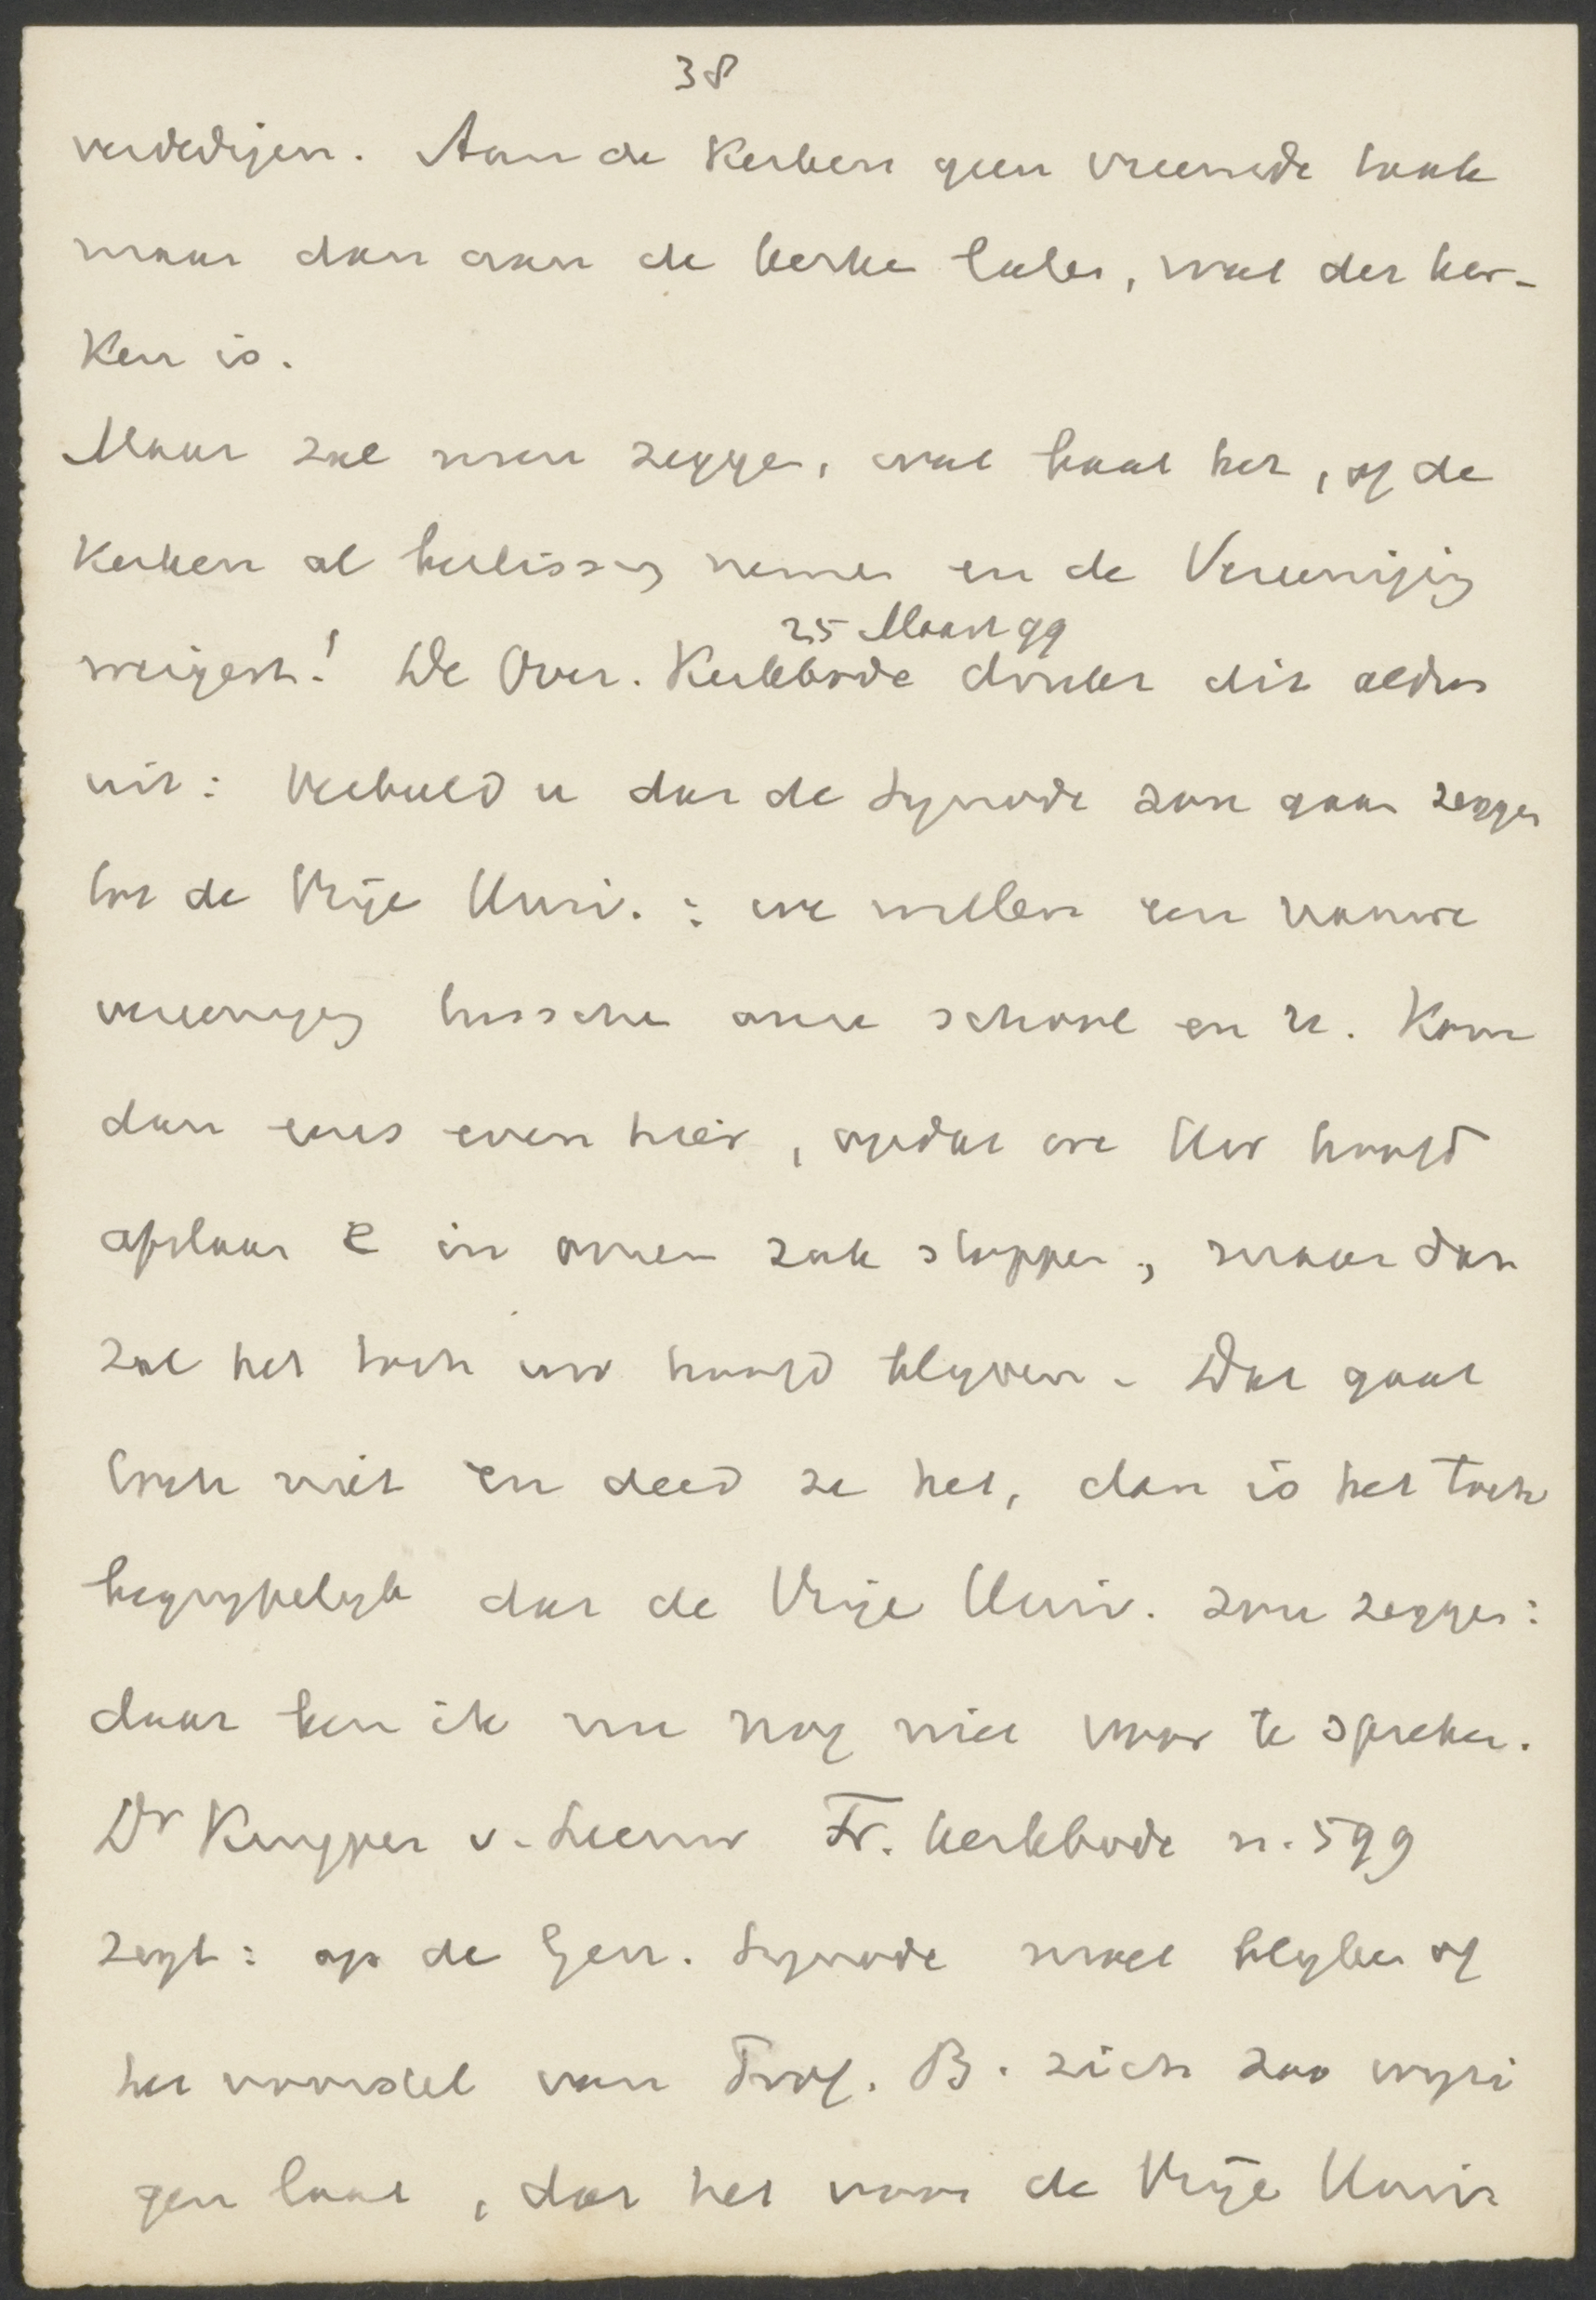 38
verdedigen. Aan de Kerken geen vreemde taak
maar dan aan de kerke laten, wat der ker-
ken is.
Maar zal men zeggen, wat baat het, of de
Kerken al beslissing nemen en de Vereeniging
weigert! De Over. Kerkbode drukt dit aldus
25 Maart 99
uit: Verbeeld u dat de Synode zou gaan zeggen
tot de Vrije Univ.: we willen een nauwe
vereeniging tusschen onze school en u. Kom
dan eens even hier, opdat we Uw hoofd
afslaan e in onzen zak stoppen, maar dan
zal het toch uw hoofd blijven. Dat gaat
toch niet en deed ze het, dan is het toch
begrypelyk dat de Vrije Univ. zou zeggen:
daar ben ik nu nog niet voor te spreken.
Dr Kuyper v. Leeuw Fr. kerkbode n. 599
zegt: op de Gen. Synode moet blyken of
het voorstel van Prof. B. zich zoo wyzi
gen laat, dat het voor de Vrije Univ